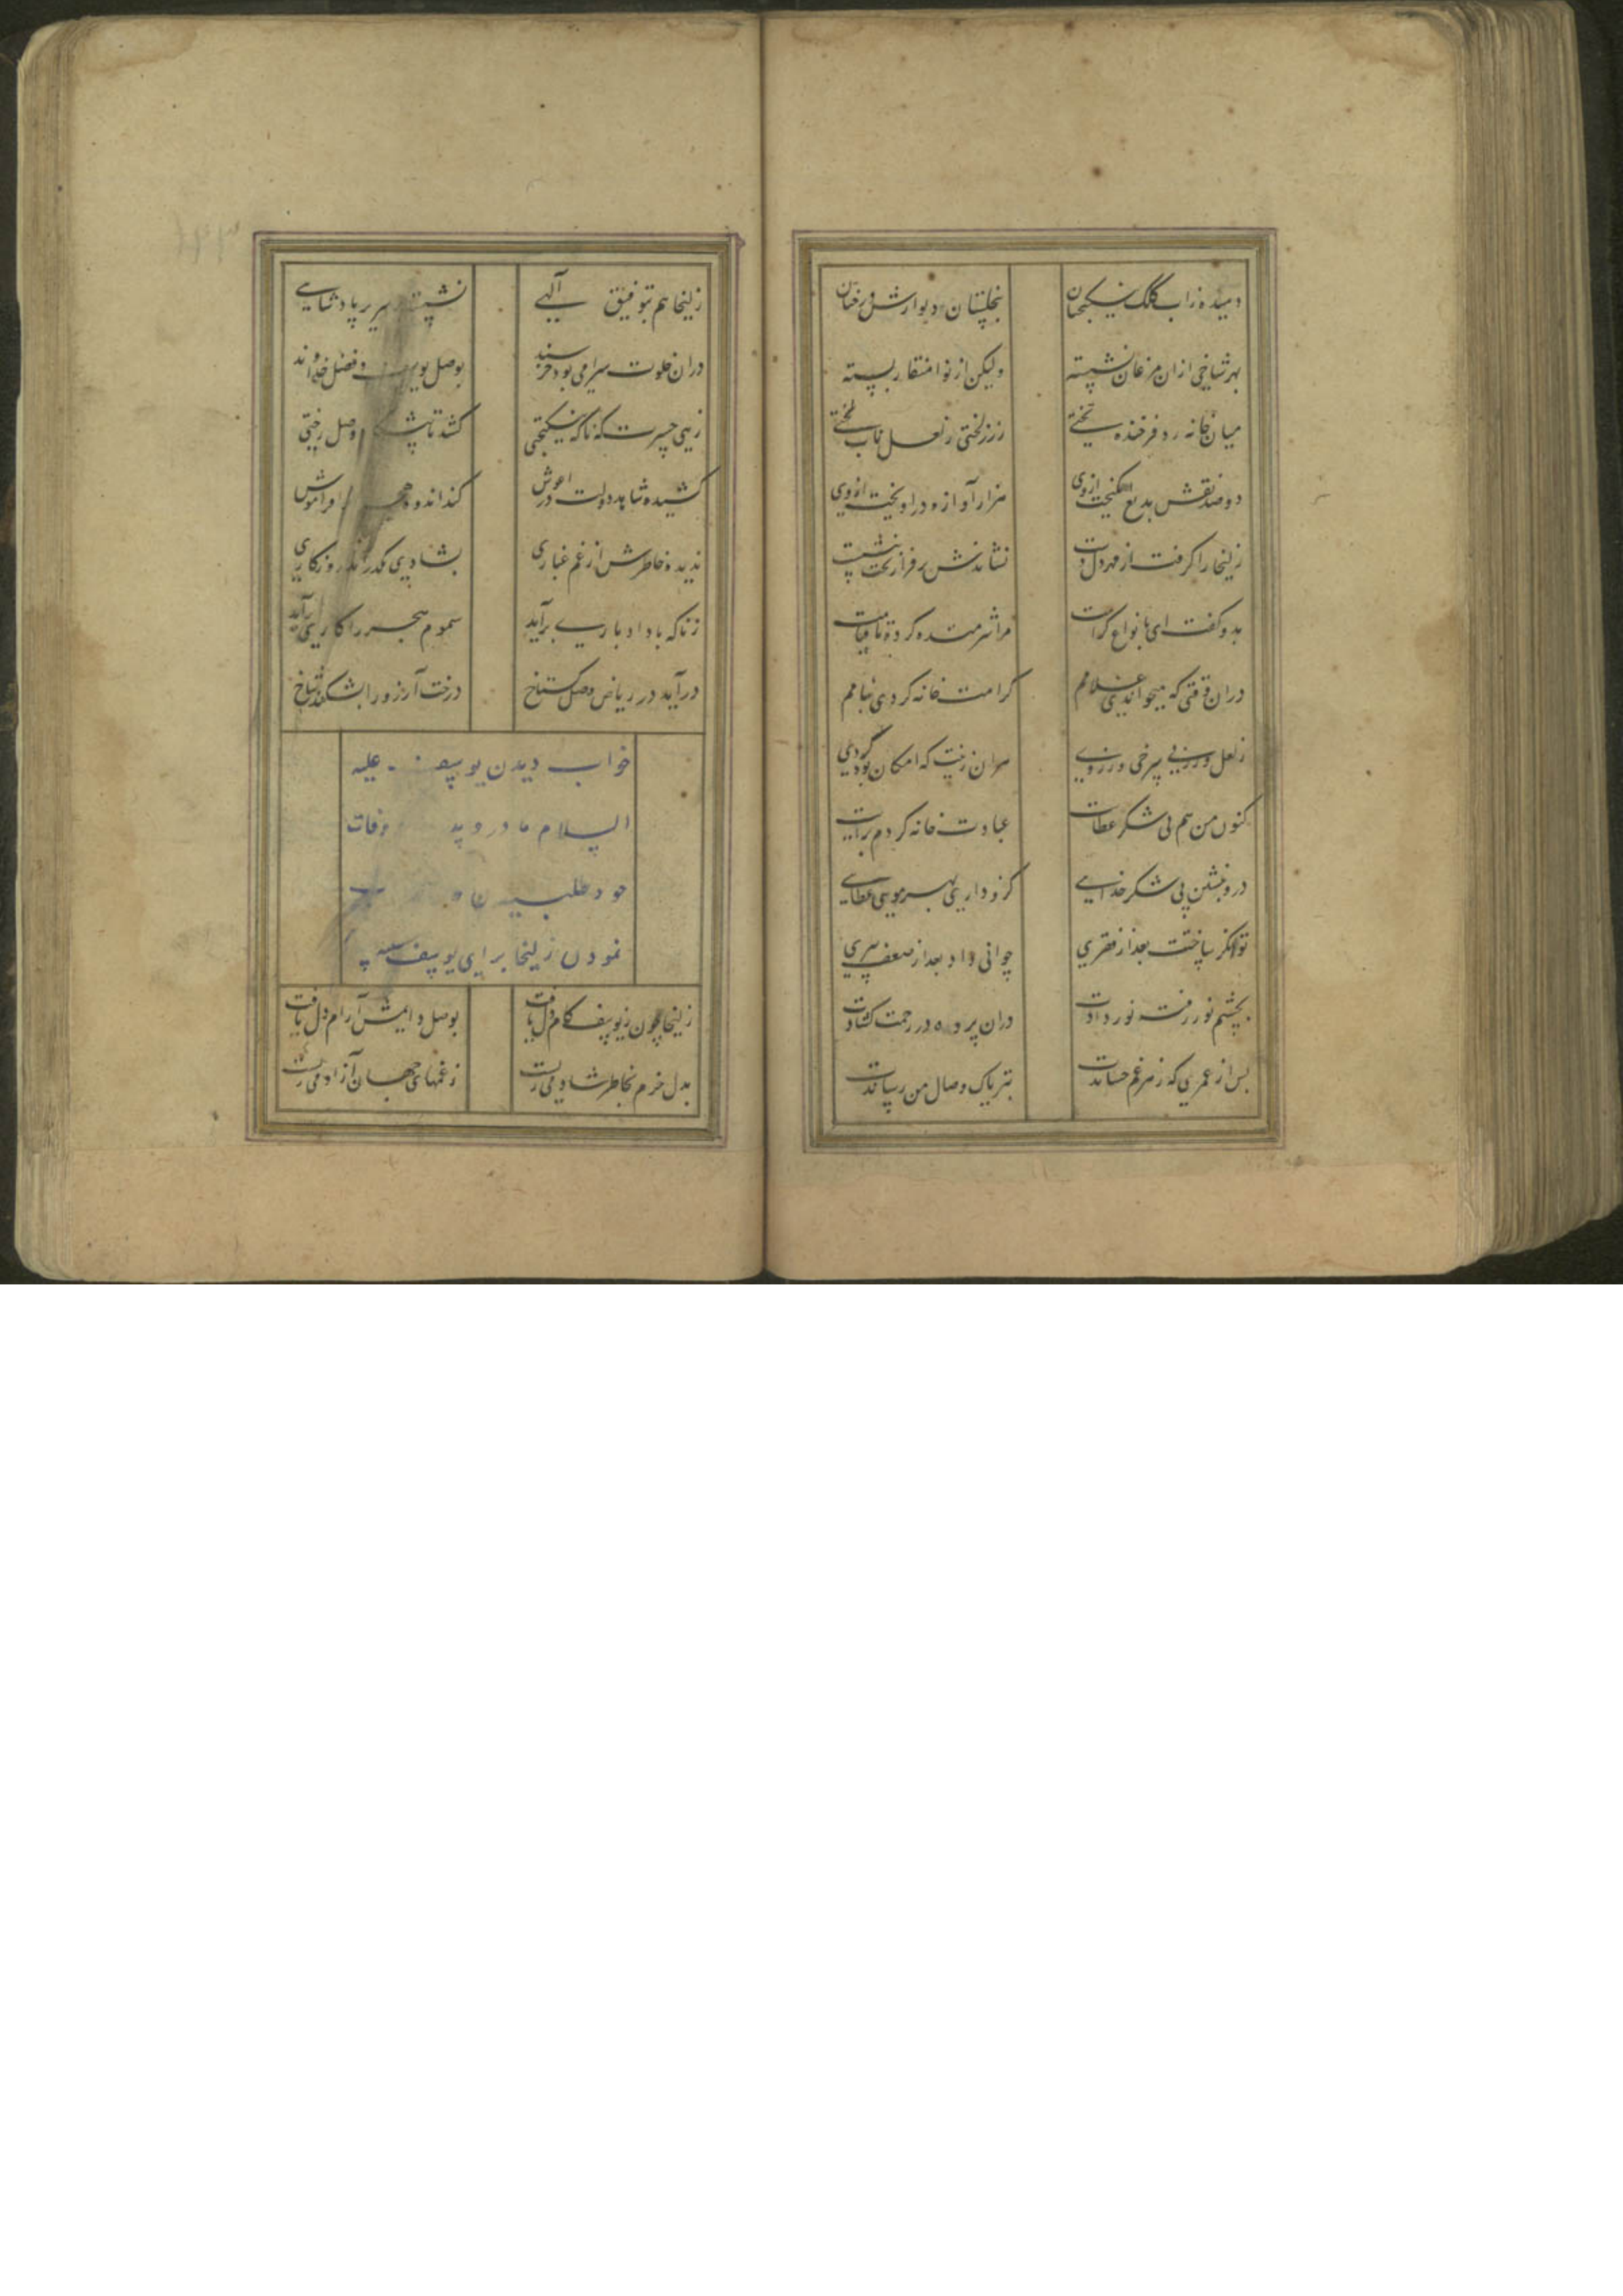 دمیده ز آب کلک نیکبختان بکلستان دیوارش درختان
بهر شاخی ازان مرغان نشسته ولیکن از نوا منقار بسته
میان خانه زد فرخنده تختی ز زر لختی ز لعل ناب لختی
دو صد نقش بدیع انگیخت ازوی هزار آوازه در آویخت ازوی
زلیخا را گرفت از مهر دل دست نشاندش بر فراز تخت بنشست
بدو گفت ای بانواع کرامت مرا شرمنده کرده تا قیامت
دران وقتی که میخواندی غلامم کرامت خانه کردی بنامم
ز لعل و زر بی سرخی و زردی هران زینت که امکان بود کردی
کنون من هم پی شکر عطایت عبادت خانه کردم برایت
درو بنشین پی شکر خدایی کزو داری بهر مویی عطایی
توانگر ساختت بعد از فقیری جوانی داد بعد از ضعف پیری
بچشم نور رفته نور دادت دران پرده در رحمت گشادت
پس از عمری که زهر غم چشاندت بتریاک وصال من رساندت
زلیخا هم بتوفیق آلهی نشسته سریر پادشاهی
دران خلوت سرا می بود خرسند بوصل یوسف و فضل خداوند
زهی حسرت که ناگه نیکبختی کشد تا وصل رختی
کشیده شاهد دولت در آغوش کند اندوه هجر فراموش
ندیده خاطرش از غم غباری بشادی گذراند روزگاری
ز ناگه باد ادباری برآید سموم هجر را کاری برآید
درآید در ریاض وصل گستاخ درخت آرزو را بشکند شاخ
خواب دیدن یوسف علیه
السلام مادر و پدر وفات
خود طلبیدن
نمودن زلیخا برای یوسف
زلیخا چون ز یوسف کام دل یافت بوصل دایمش آرام دل یافت
بدل خرم بخاطر شاد می زیست ز غمهای جهان آزاد می زیست